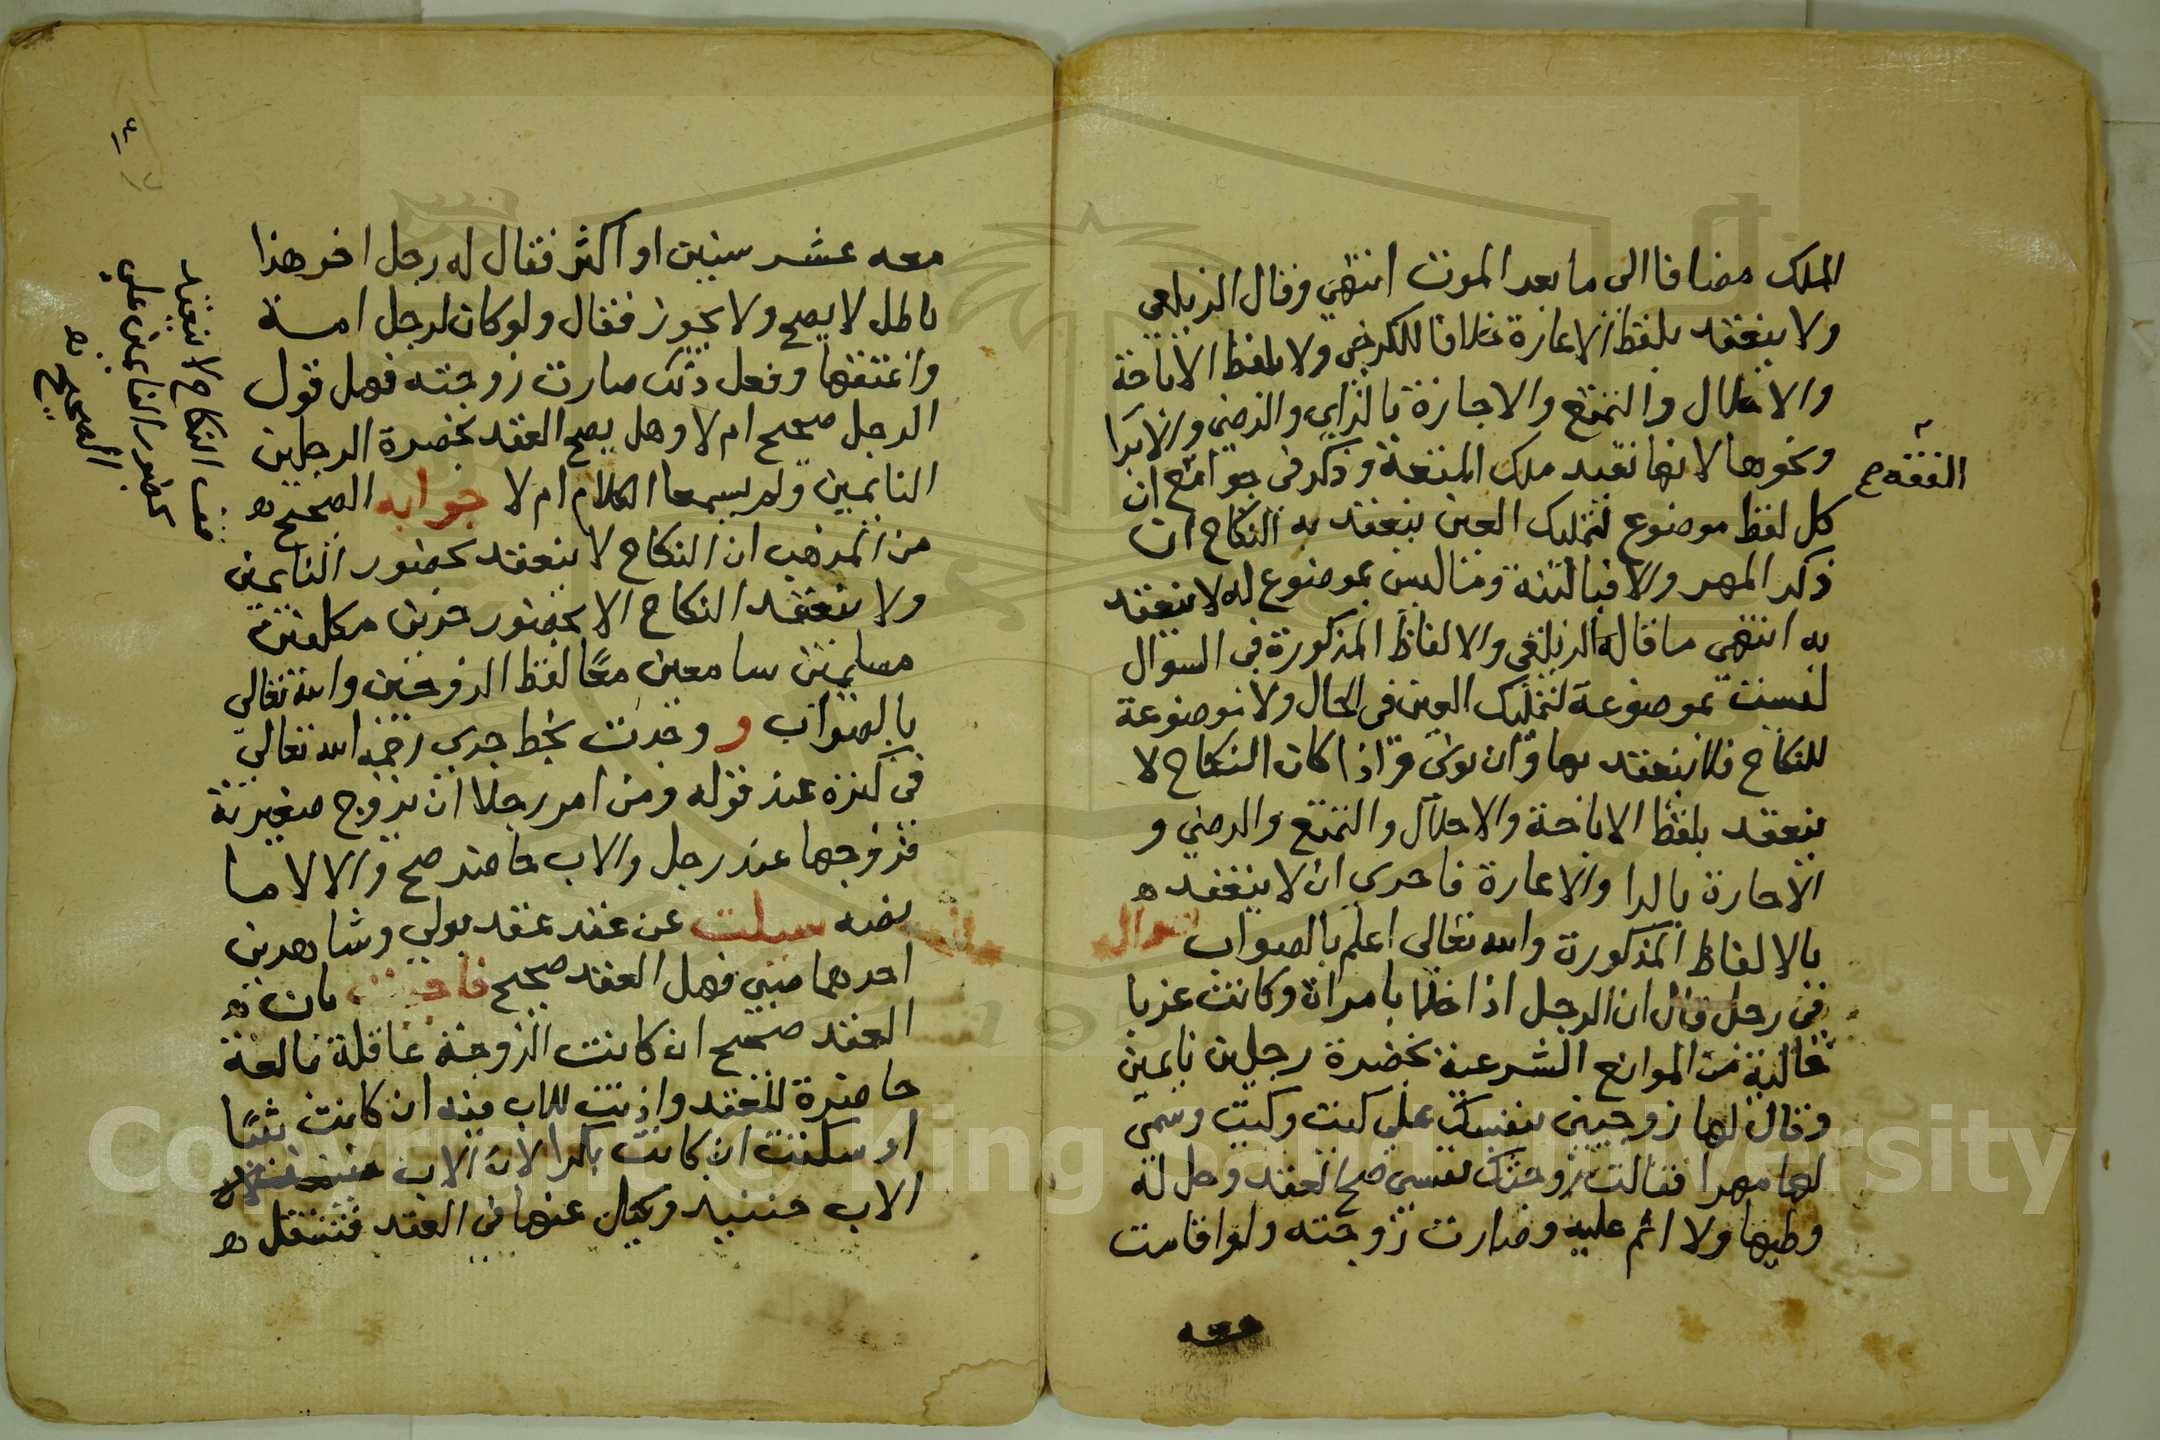 الملك مضافا الى ما بعد الموت انتهي وقال الزيلعي
ولا ينعقد بلفظ الاعارة خلافا للكرخي ولا بلفظ الاباحة
والاحلال والتمتع والاجازة بالزاي والرضي والابرا
ونحوها لانها تفيد ملك المتعة وذكر في جوامع ان
الفقه ح
كل لفظ موضوع لتمليك العين ينعقد به النكاح ان
ذكر المهر والا فبالنية وما ليس بموضوع له لا ينعقد
به انتهى ما قاله الزيلعي والالفاظ المذكورة في السوال
ليست بموضوعة لتمليك العين في الحال ولا موضوعة
للنكاح فلا ينعقد بها وان نوى فاذا كان النكاح لا
ينعقد بلفظ الاباحة والاحلال والتمتع والرضي و
الاجارة بالرا والاعارة فاحري ان لا ينعقد
بالالفاظ المذكورة والله تعالى اعلم بالصواب
في رجل قال ان الرجل اذا خلا بامراة وكانت عزبا
خالية من الموانع الشرعية بحضرة رجلين نايمين
وقال لها زوجيني بنفسك على كيت وكيت وسمى
لها مهرا فقالت زوجتك نفسي صح العقد وحل له
وطيها ولا اثم عليه وصارت زوجته ولو اقامت
معه
معه عشر سنين او اكثر فقال له رجل اخر هذا
باطل لا يصح ولا يجوز فقال ولو كان لرجل امة
واعتقها وفعل ذلك صارت زوجته فهل قول
الرجل صحيح ام لا وهل يصح العقد بحضرة الرجلين
النايمين ولم يسمعا الكلام ام لا جوابه الصحيح
من المذهب ان النكاح لا ينعقد بحضور النايمين
ولا ينعقد النكاح الا بحضور حرين مكلفين
مسلمين سامعين معًا لفظ الزوجين والله تعالى
بالصواب و وجدت بخط جدي رحمه الله تعالى
في كنزه عند قوله ومن امر رجلا ان يزوج صغيرته
فزوجها عند رجل والاب حاضر صح والا لا ما
نصه سيلت عن عقد عقد بولي وشاهدين
احدهما صبي فهل العقد صحيح فاجبت بان
العقد صحيح ان كانت الزوجة عاقلة بالغة
حاضرة للعقد واذنت للاب فيه ان كانت ثيبًا
او سكتت ان كانت بكرا لان الاب
الاب حينيذ وكيل عنها في العقد فتنتقل
النكاح لا ينعقد
بحضور النايمين على
الصحيح